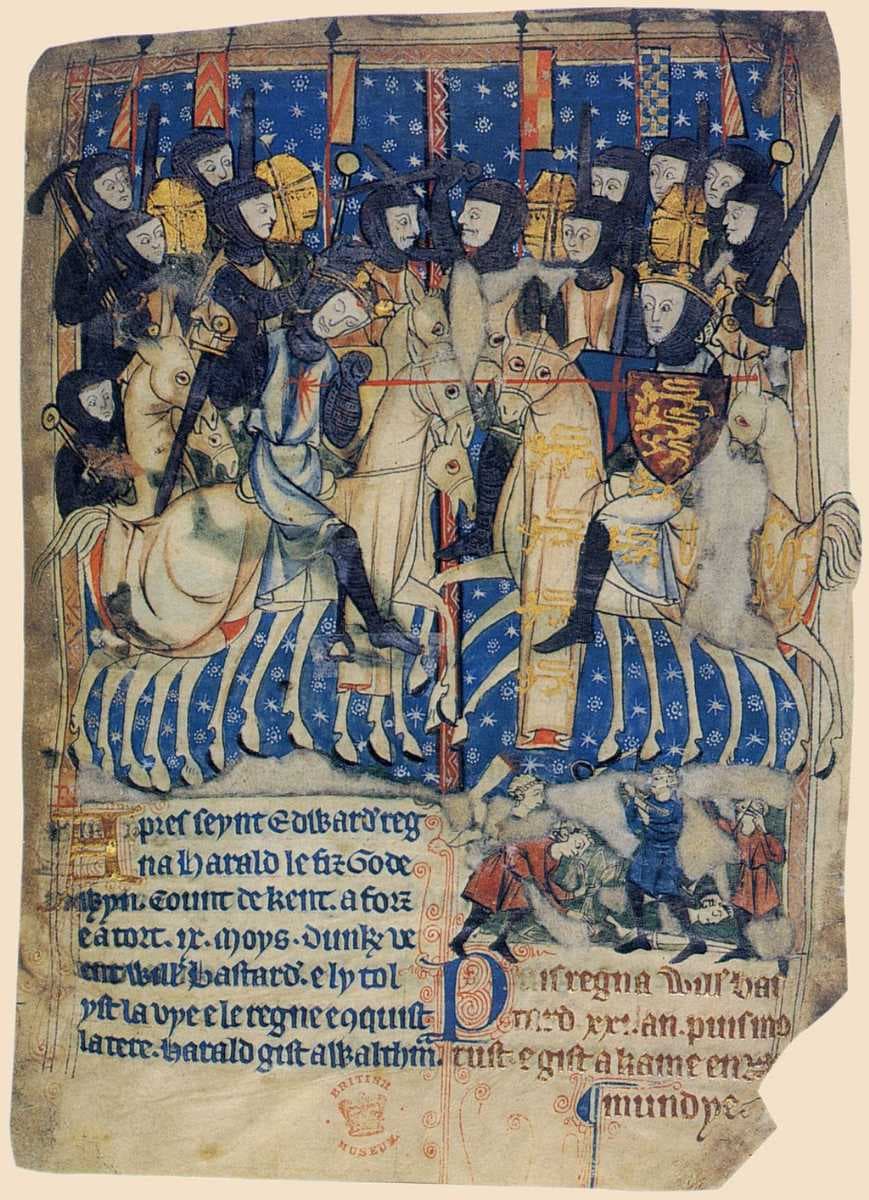 Apres seynt Edward' reg
na Harald le fiz Gode
wyn. Count de kent. a forz
e a tort. ix. moys. dunk ve
ent Will' bastard'. e ly tol
yst la vye e le regne enquist
la tere. Harald gist a Waltham.
Puis regna Will' bas
tard. xxi. an. puis mo
rust. e gist a kame en
mundye
BRITISH
MUSEUM